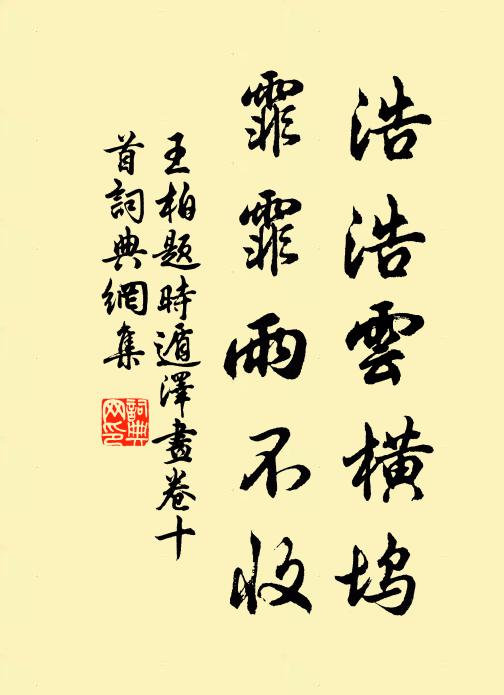 浩浩雲橫塢
霏霏雨不收
王柏題時遁澤畫卷十
首詞典網集
詞典
网印